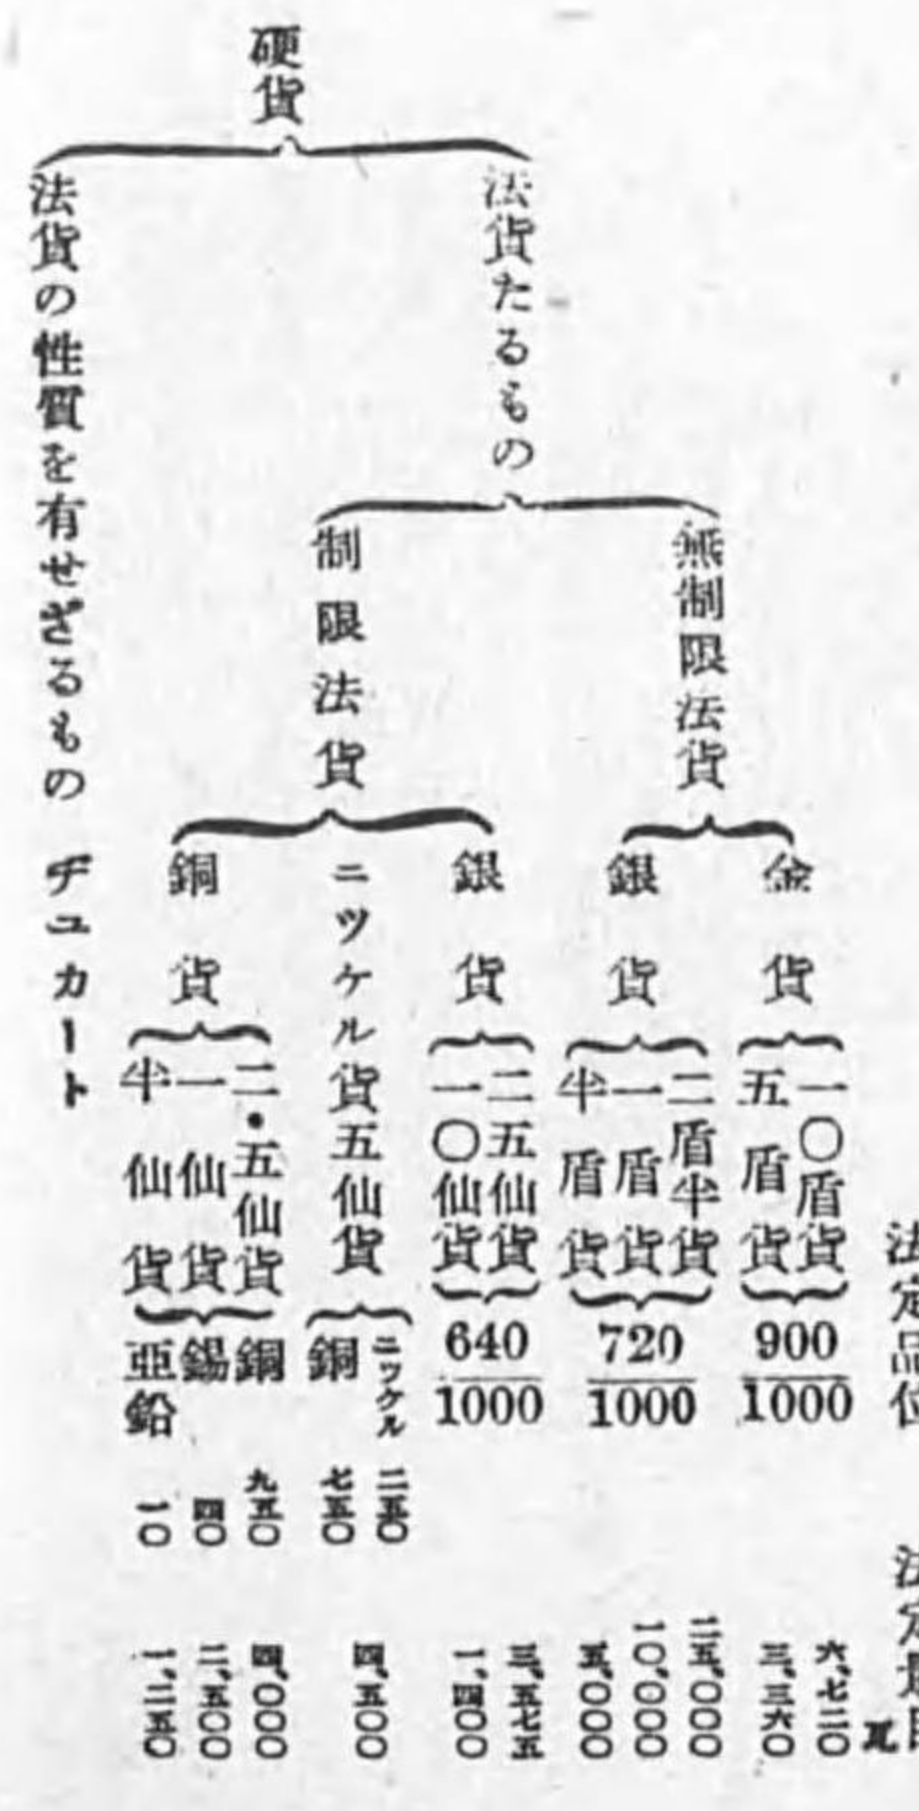 法定品位
法定量目
瓦
硬貨
法貨たるもの
無制限法貨
金貨
一〇盾貨
五盾貨
900
1000
六、七二〇
三、三六〇
銀貨
二盾半貨
一盾貨
半盾貨
720
1000
二五、〇〇〇
一〇、〇〇〇
五、〇〇〇
制限法貨
銀貨
二五仙貨
一〇仙貨
640
1000
三、五七五
一、四〇〇
ニツケル貨五仙貨
ニツケル 二五〇
銅 七五〇
四、五〇〇
銅貨
二・五仙貨
一仙貨
半仙貨
銅 九五〇
錫 四〇
亜鉛 一〇
四、〇〇〇
二、五〇〇
一、二五〇
法貨の性質を有せざるもの ヂユカート